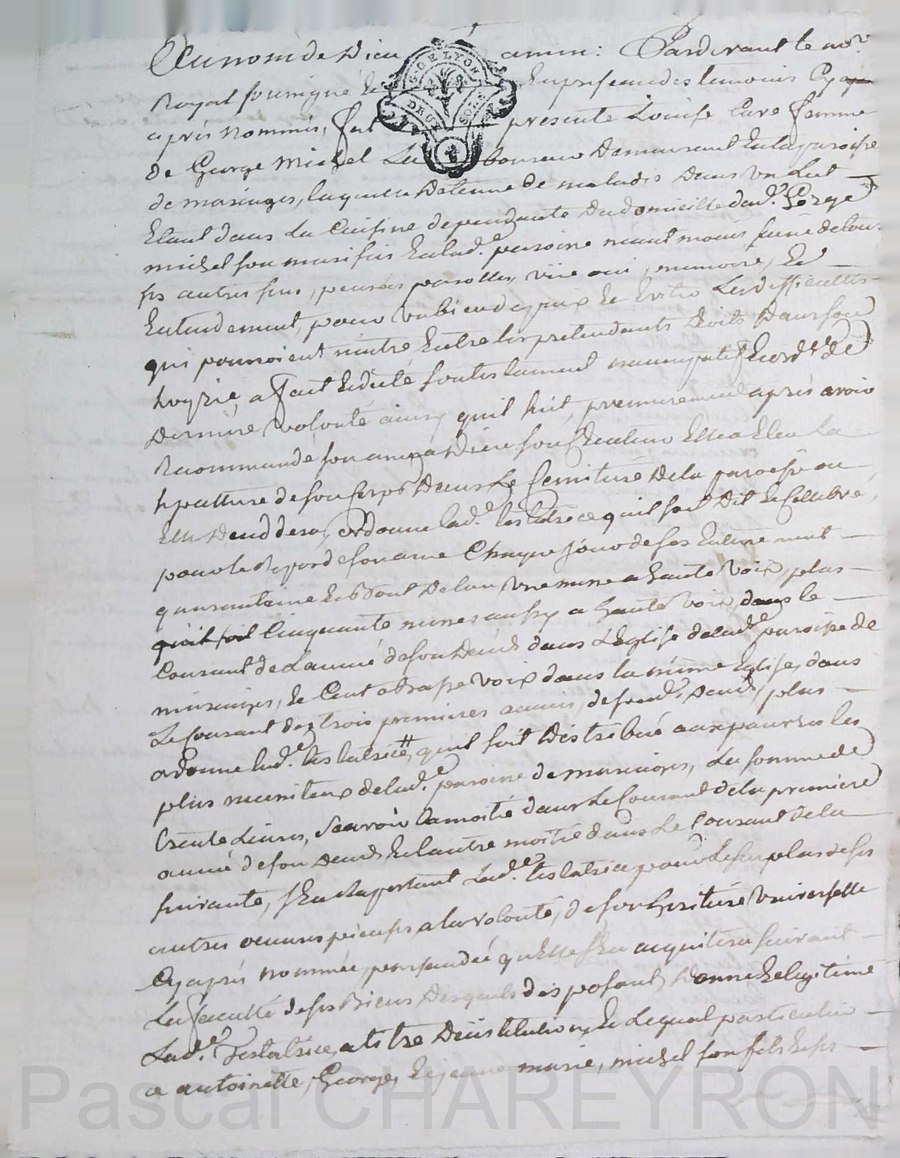 Au nom de Dieu amen: Pardevant le nore
G. DE LYON
DEUX SOLS
Royal soussigné Et En presence des temoins Cy
apprés nommés, fut presente Louise Cure femme
de George Michel Laboureur Demeurant En la paroisse
de maringes, laquelle Detenue de maladie Dans un Lit
Etant dans La Cuisine dependante du domicille dud. George
michel son mari sis En lad. paroisse neant moins saine de tous
ses autres sens, pensée parolles, vüe oui, memoire, Et
Entendement, pour un bien de paix Et Eviter Les difficultés
qui pourroient naitre Entre les pretendants droits Dans son
hoyrie, a fait Edicté son testament nuncupatif Et ord.re de
Derniere volonté ainsy quil suit, premierement apres avoir
Recommandé son ame a Dieu son Createur Elle a Eleu La
sepulture de son Corps Dans Le Cemitiere De la paroisse ou
Elle Deceddera, ordonne lad. testatrice quil soit Dit Et Celebré,
pour le Repos de son ame Chaque jour de ses Enterrement
quarantaine Et bout De lan Une messe a haute voix, plus
quil soit Cinquante messes aussy a haute voix dans le
Courant de L'année de son Deceds dans L'Eglise de lad. paroisse de
maringes, Et Cent a basse voix dans la même Eglise, dans
Le Courant des trois premieres années, de sond. Deceds, plus
ordonne lad. testatrice, quil soit Distribué aux pauvres les
plus necessiteux de lad. paroisse de maringes, La somme de
trente Livres, Scavoir la moitié dans Le Courant de la premiere
année de son Deceds Et l'autre moitié dans Le Courant de la
suivante, s'En Raportant Lad. testatrice pour Le surplus de ses
autres oeuvres pieuses a la volonté, de son heritiere Universelle
Cy apres nommée, persuadée quElle s'En acquitera suivant
La faculté de ses Biens Desquels disposant, Donne Et legue
Lad. Testatrice, a titre D'institution, Et Legat particulier
a antoinette, George, Et jeanne marie, michel son fils Et ses
Pascal CHAREYRON